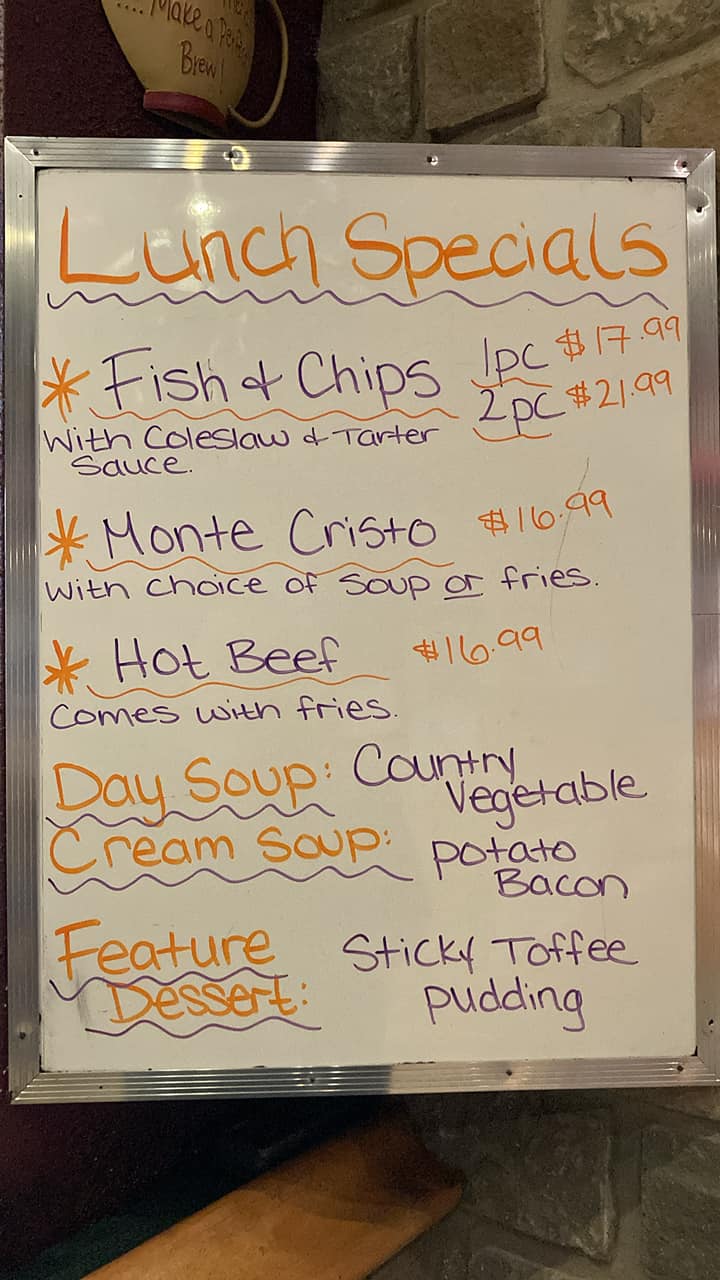 .... Make a Perfect
Brew!
Lunch Specials
* Fish & Chips 1pc $17.99
2pc $21.99
With Coleslaw & Tarter
Sauce.
* Monte Cristo $16.99
With choice of soup or fries.
* Hot Beef $16.99
Comes with fries.
Day Soup: Country
Vegetable
Cream Soup: potato
Bacon
Feature Sticky Toffee
Dessert: pudding